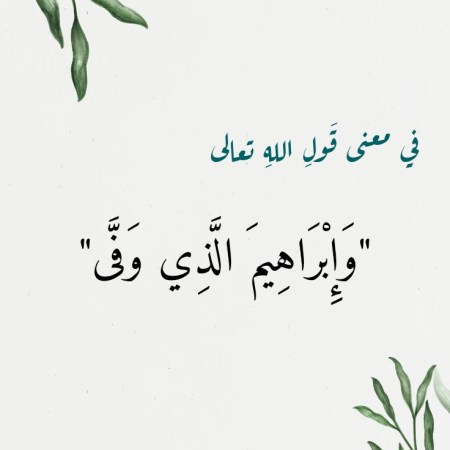 في معنى قَولِ اللهِ تعالى
"وَإِبْرَاهِيمَ الَّذِي وَفَّى"